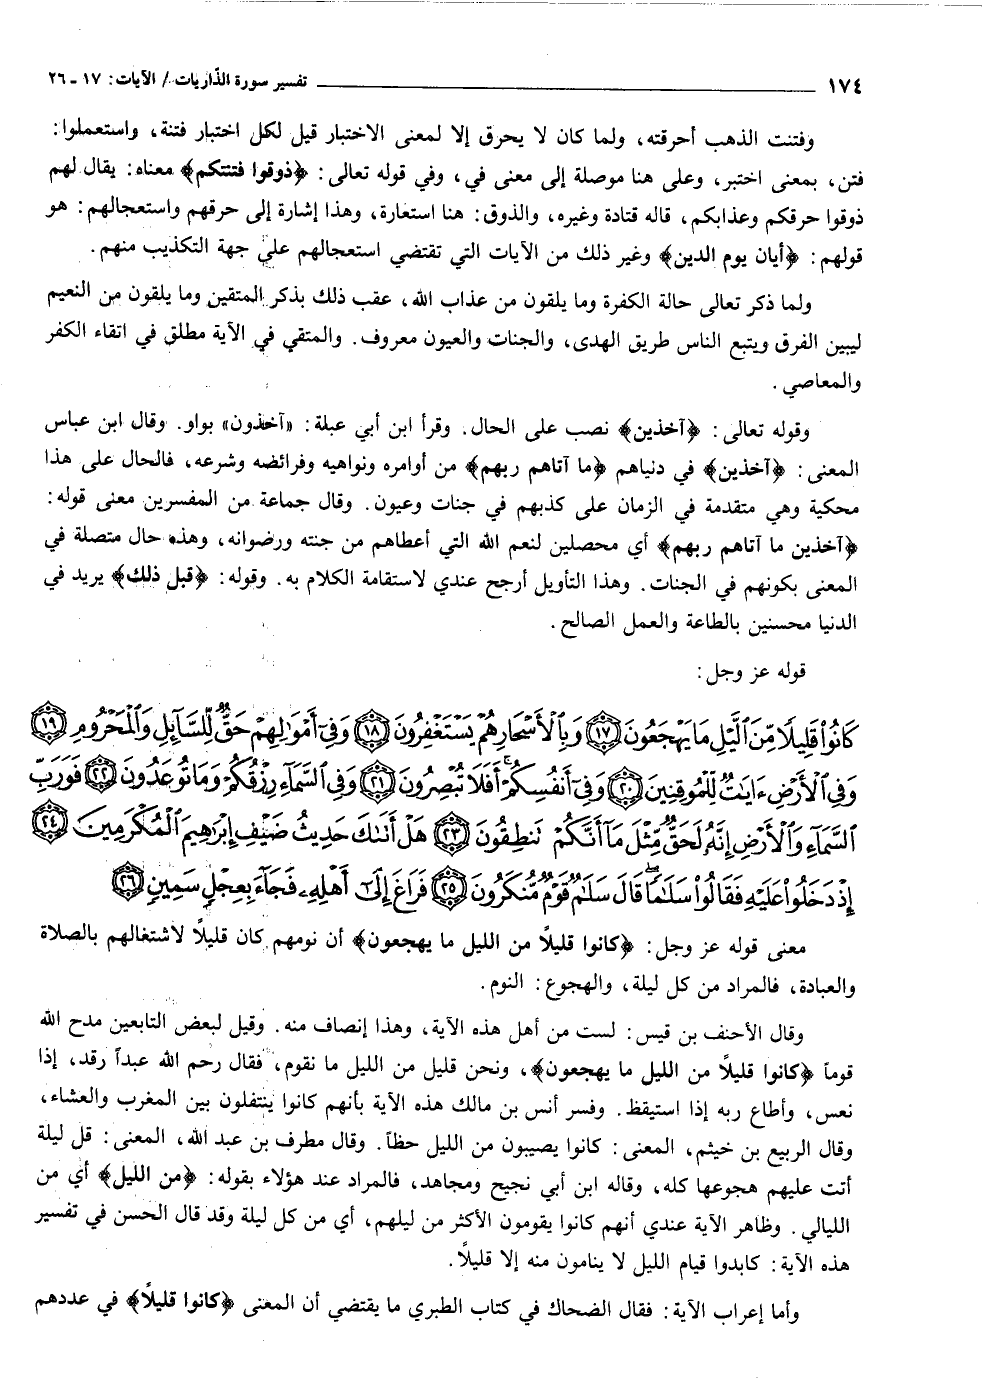 ١٧٤ ــــــ تفسير سورة الذّاريات / الآيات: ١٧ - ٢٦
وفتنت الذهب أحرقته، ولما كان لا يحرق إلا لمعنى الاختبار قيل لكل اختبار فتنة، واستعملوا:
فتن، بمعنى اختبر، وعلى هنا موصلة إلى معنى في، وفي قوله تعالى: ﴿ذوقوا فتنتكم﴾ معناه: يقال لهم
ذوقوا حرقكم وعذابكم، قاله قتادة وغيره، والذوق: هنا استعارة، وهذا إشارة إلى حرقهم واستعجالهم: هو
قولهم: ﴿أيان يوم الدين﴾ وغير ذلك من الآيات التي تقتضي استعجالهم على جهة التكذيب منهم.
ولما ذكر تعالى حالة الكفرة وما يلقون من عذاب الله، عقب ذلك بذكر المتقين وما يلقون من النعيم
ليبين الفرق ويتبع الناس طريق الهدى، والجنات والعيون معروف. والمتقي في الآية مطلق في اتقاء الكفر
والمعاصي.
وقوله تعالى: ﴿آخذين﴾ نصب على الحال. وقرأ ابن أبي عبلة: «آخذون» بواو. وقال ابن عباس
المعنى: ﴿آخذين﴾ في دنياهم ﴿ما آتاهم ربهم﴾ من أوامره ونواهيه وفرائضه وشرعه، فالحال على هذا
محكية وهي متقدمة في الزمان على كذبهم في جنات وعيون. وقال جماعة من المفسرين معنى قوله:
﴿آخذين ما آتاهم ربهم﴾ أي محصلين لنعم الله التي أعطاهم من جنته ورضوانه، وهذه حال متصلة في
المعنى بكونهم في الجنات. وهذا التأويل أرجح عندي لاستقامة الكلام به. وقوله: ﴿قبل ذلك﴾ يريد في
الدنيا محسنين بالطاعة والعمل الصالح.
قوله عز وجل:
كَانُوا۟ قَلِيلًا مِّنَ ٱلَّيْلِ مَا يَهْجَعُونَ ﴿١٧﴾ وَبِٱلْأَسْحَارِ هُمْ يَسْتَغْفِرُونَ ﴿١٨﴾ وَفِىٓ أَمْوَٰلِهِمْ حَقٌّ لِّلسَّآئِلِ وَٱلْمَحْرُومِ ﴿١٩﴾
وَفِى ٱلْأَرْضِ ءَايَٰتٌ لِّلْمُوقِنِينَ ﴿٢٠﴾ وَفِىٓ أَنفُسِكُمْ ۚ أَفَلَا تُبْصِرُونَ ﴿٢١﴾ وَفِى ٱلسَّمَآءِ رِزْقُكُمْ وَمَا تُوعَدُونَ ﴿٢٢﴾ فَوَرَبِّ
ٱلسَّمَآءِ وَٱلْأَرْضِ إِنَّهُۥ لَحَقٌّ مِّثْلَ مَآ أَنَّكُمْ تَنطِقُونَ ﴿٢٣﴾ هَلْ أَتَىٰكَ حَدِيثُ ضَيْفِ إِبْرَٰهِيمَ ٱلْمُكْرَمِينَ ﴿٢٤﴾
إِذْ دَخَلُوا۟ عَلَيْهِ فَقَالُوا۟ سَلَٰمًا ۖ قَالَ سَلَٰمٌ قَوْمٌ مُّنكَرُونَ ﴿٢٥﴾ فَرَاغَ إِلَىٰٓ أَهْلِهِۦ فَجَآءَ بِعِجْلٍ سَمِينٍ ﴿٢٦﴾
معنى قوله عز وجل: ﴿كانوا قليلاً من الليل ما يهجعون﴾ أن نومهم كان قليلاً لاشتغالهم بالصلاة
والعبادة، فالمراد من كل ليلة، والهجوع: النوم.
وقال الأحنف بن قيس: لست من أهل هذه الآية، وهذا إنصاف منه. وقيل لبعض التابعين مدح الله
قوماً ﴿كانوا قليلاً من الليل ما يهجعون﴾، ونحن قليل من الليل ما نقوم، فقال رحم الله عبداً رقد، إذا
نعس، وأطاع ربه إذا استيقظ. وفسر أنس بن مالك هذه الآية بأنهم كانوا ينتفلون بين المغرب والعشاء،
وقال الربيع بن خيثم، المعنى: كانوا يصيبون من الليل حظاً. وقال مطرف بن عبد الله، المعنى: قل ليلة
أتت عليهم هجوعها كله، وقاله ابن أبي نجيح ومجاهد، فالمراد عند هؤلاء بقوله: ﴿من الليل﴾ أي من
الليالي. وظاهر الآية عندي أنهم كانوا يقومون الأكثر من ليلهم، أي من كل ليلة وقد قال الحسن في تفسير
هذه الآية: كابدوا قيام الليل لا ينامون منه إلا قليلاً.
وأما إعراب الآية: فقال الضحاك في كتاب الطبري ما يقتضي أن المعنى ﴿كانوا قليلاً﴾ في عددهم